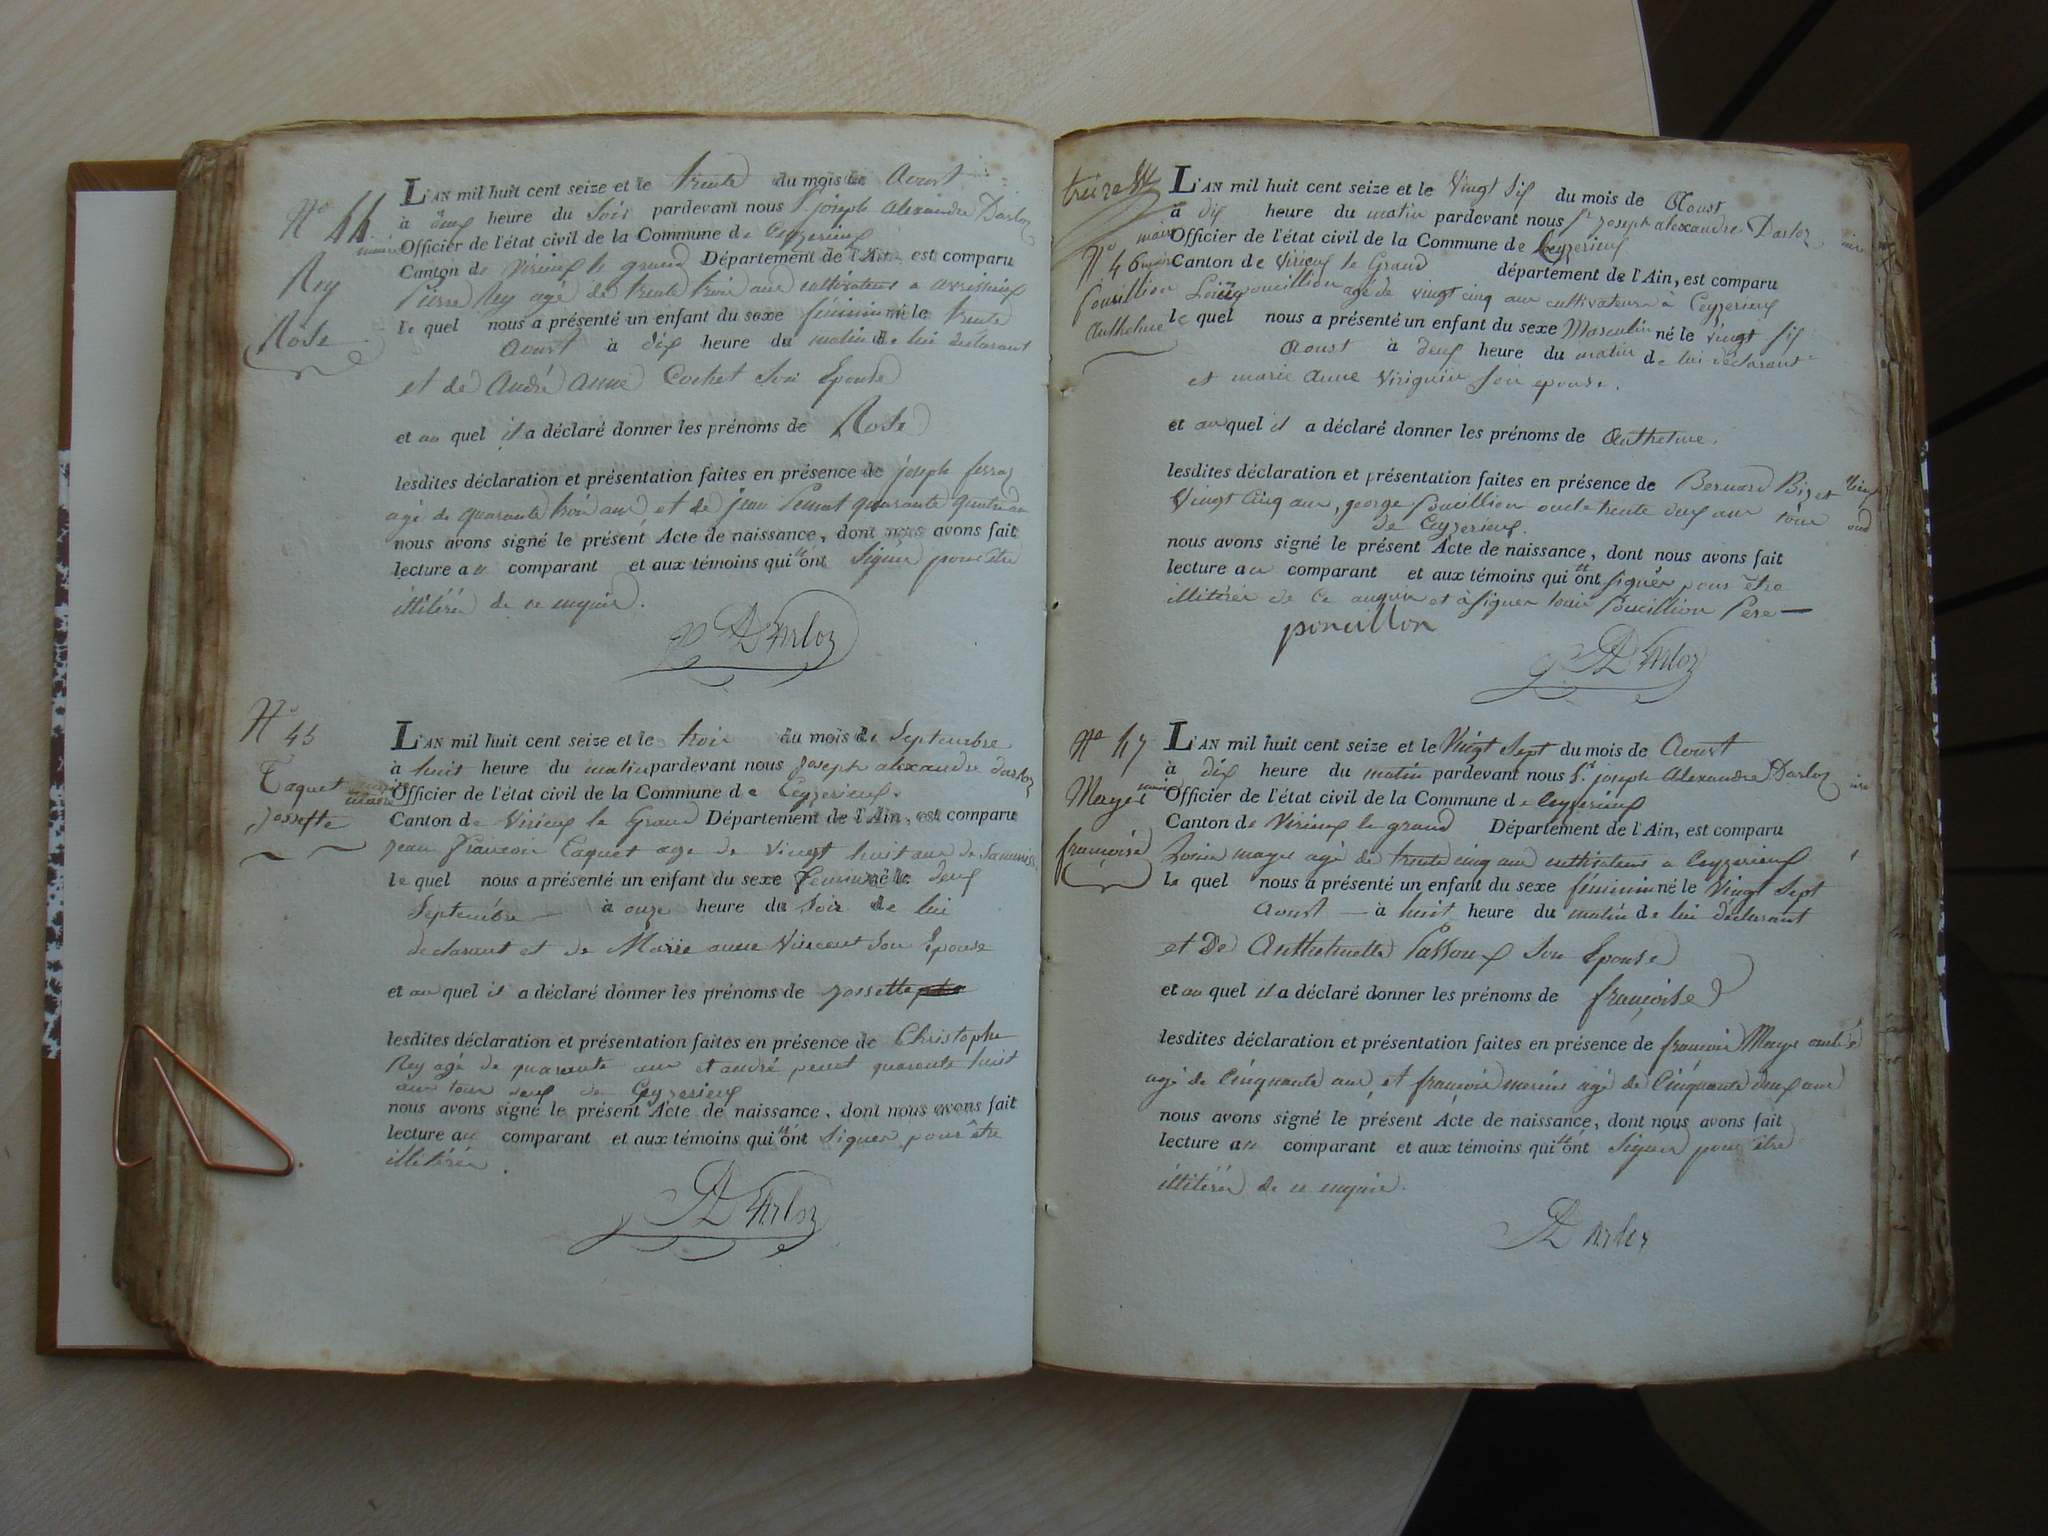 N° 44
Rey
Rose
L'AN mil huit cent seize et le trente du mois de Aoust
à deux heure du soir pardevant nous Sr joseph alexandre Darloz
maire Officier de l'état civil de la Commune de Ceyzerieux
Canton de Virieux le grand Département de l'Ain, est comparu
Pierre Rey agé de trente trois ans cultivateur a
le quel nous a présenté un enfant du sexe féminin né le trente
Aoust à dix heure du matin de lui déclarant
et de André Anne Cochet son Epouse
et au quel il a déclaré donner les prénoms de Rose
lesdites déclaration et présentation faites en présence de joseph ferraz
agé de quarante trois ans et de jean quarante quatre ans
nous avons signé le présent Acte de naissance, dont nous avons fait
lecture au comparant et aux témoins qui n'ont signer pour être
illitérés de ce enquis.
Darloz
N° 45
Taquet
Josepte
L'AN mil huit cent seize et le trois du mois de Septembre
à huit heure du matin pardevant nous joseph alexandre darloz
maire Officier de l'état civil de la Commune de Ceyzerieux.
Canton de Virieux le Grand Département de l'Ain, est comparu
jean françois Taquet age de vingt huit ans de
le quel nous a présenté un enfant du sexe feminin né le deux
Septembre — à onze heure du soir de lui
declarant et de Marie anne Vincent son Epouse
et au quel il a déclaré donner les prénoms de josette
lesdites déclaration et présentation faites en présence de Christophe
Rey agé de quarante ans et andré penet quarante huit
ans tous deux de Ceyzerieux
nous avons signé le présent Acte de naissance, dont nous avons fait
lecture au comparant et aux témoins qui n'ont signer pour être
illitérés.
Darloz
treize
N° 46
Poucillion
Anthelme
L'AN mil huit cent seize et le vingt six du mois de Aoust
à dix heure du matin pardevant nous Sr joseph alexandre Darloz
maire Officier de l'état civil de la Commune de Ceyzerieux
Canton de Virieux le Grand département de l'Ain, est comparu
Louis poucillion agé de vingt cinq ans cultivateur à Ceyzerieux
le quel nous a présenté un enfant du sexe Masculin né le vingt six
Aoust à deux heure du matin de lui déclarant
et marie anne Viriguin son epouse.
et au quel il a déclaré donner les prénoms de Anthelme.
lesdites déclaration et présentation faites en présence de Bernard Bizet
vingt cinq ans, george Poucillion oncle trente deux ans tous
de Ceyzerieux.
nous avons signé le présent Acte de naissance, dont nous avons fait
lecture au comparant et aux témoins qui n'ont signés pour être
illitérés de ce enquis et à signer louis Poucillion Pere —
poncillon
Darloz
N° 47
Mayer
françoise
L'AN mil huit cent seize et le vingt sept du mois de Aoust
à dix heure du matin pardevant nous Sr joseph Alexandre Darloz
maire Officier de l'état civil de la Commune de Ceyzerieux
Canton de Virieux le grand Département de l'Ain, est comparu
mayer agé de trente cinq ans cultivateur a Ceyzerieux
le quel nous a présenté un enfant du sexe féminin né le vingt sept
Aoust — à huit heure du matin de lui déclarant
et De Anthelmette Passoux son Epouse
et au quel il a déclaré donner les prénoms de françoise
lesdites déclaration et présentation faites en présence de françois Mayer
agé de cinquante ans, et françois agé de cinquante deux ans
nous avons signé le présent Acte de naissance, dont nous avons fait
lecture au comparant et aux témoins qui n'ont signer pour être
illitérés de ce enquis.
Darloz